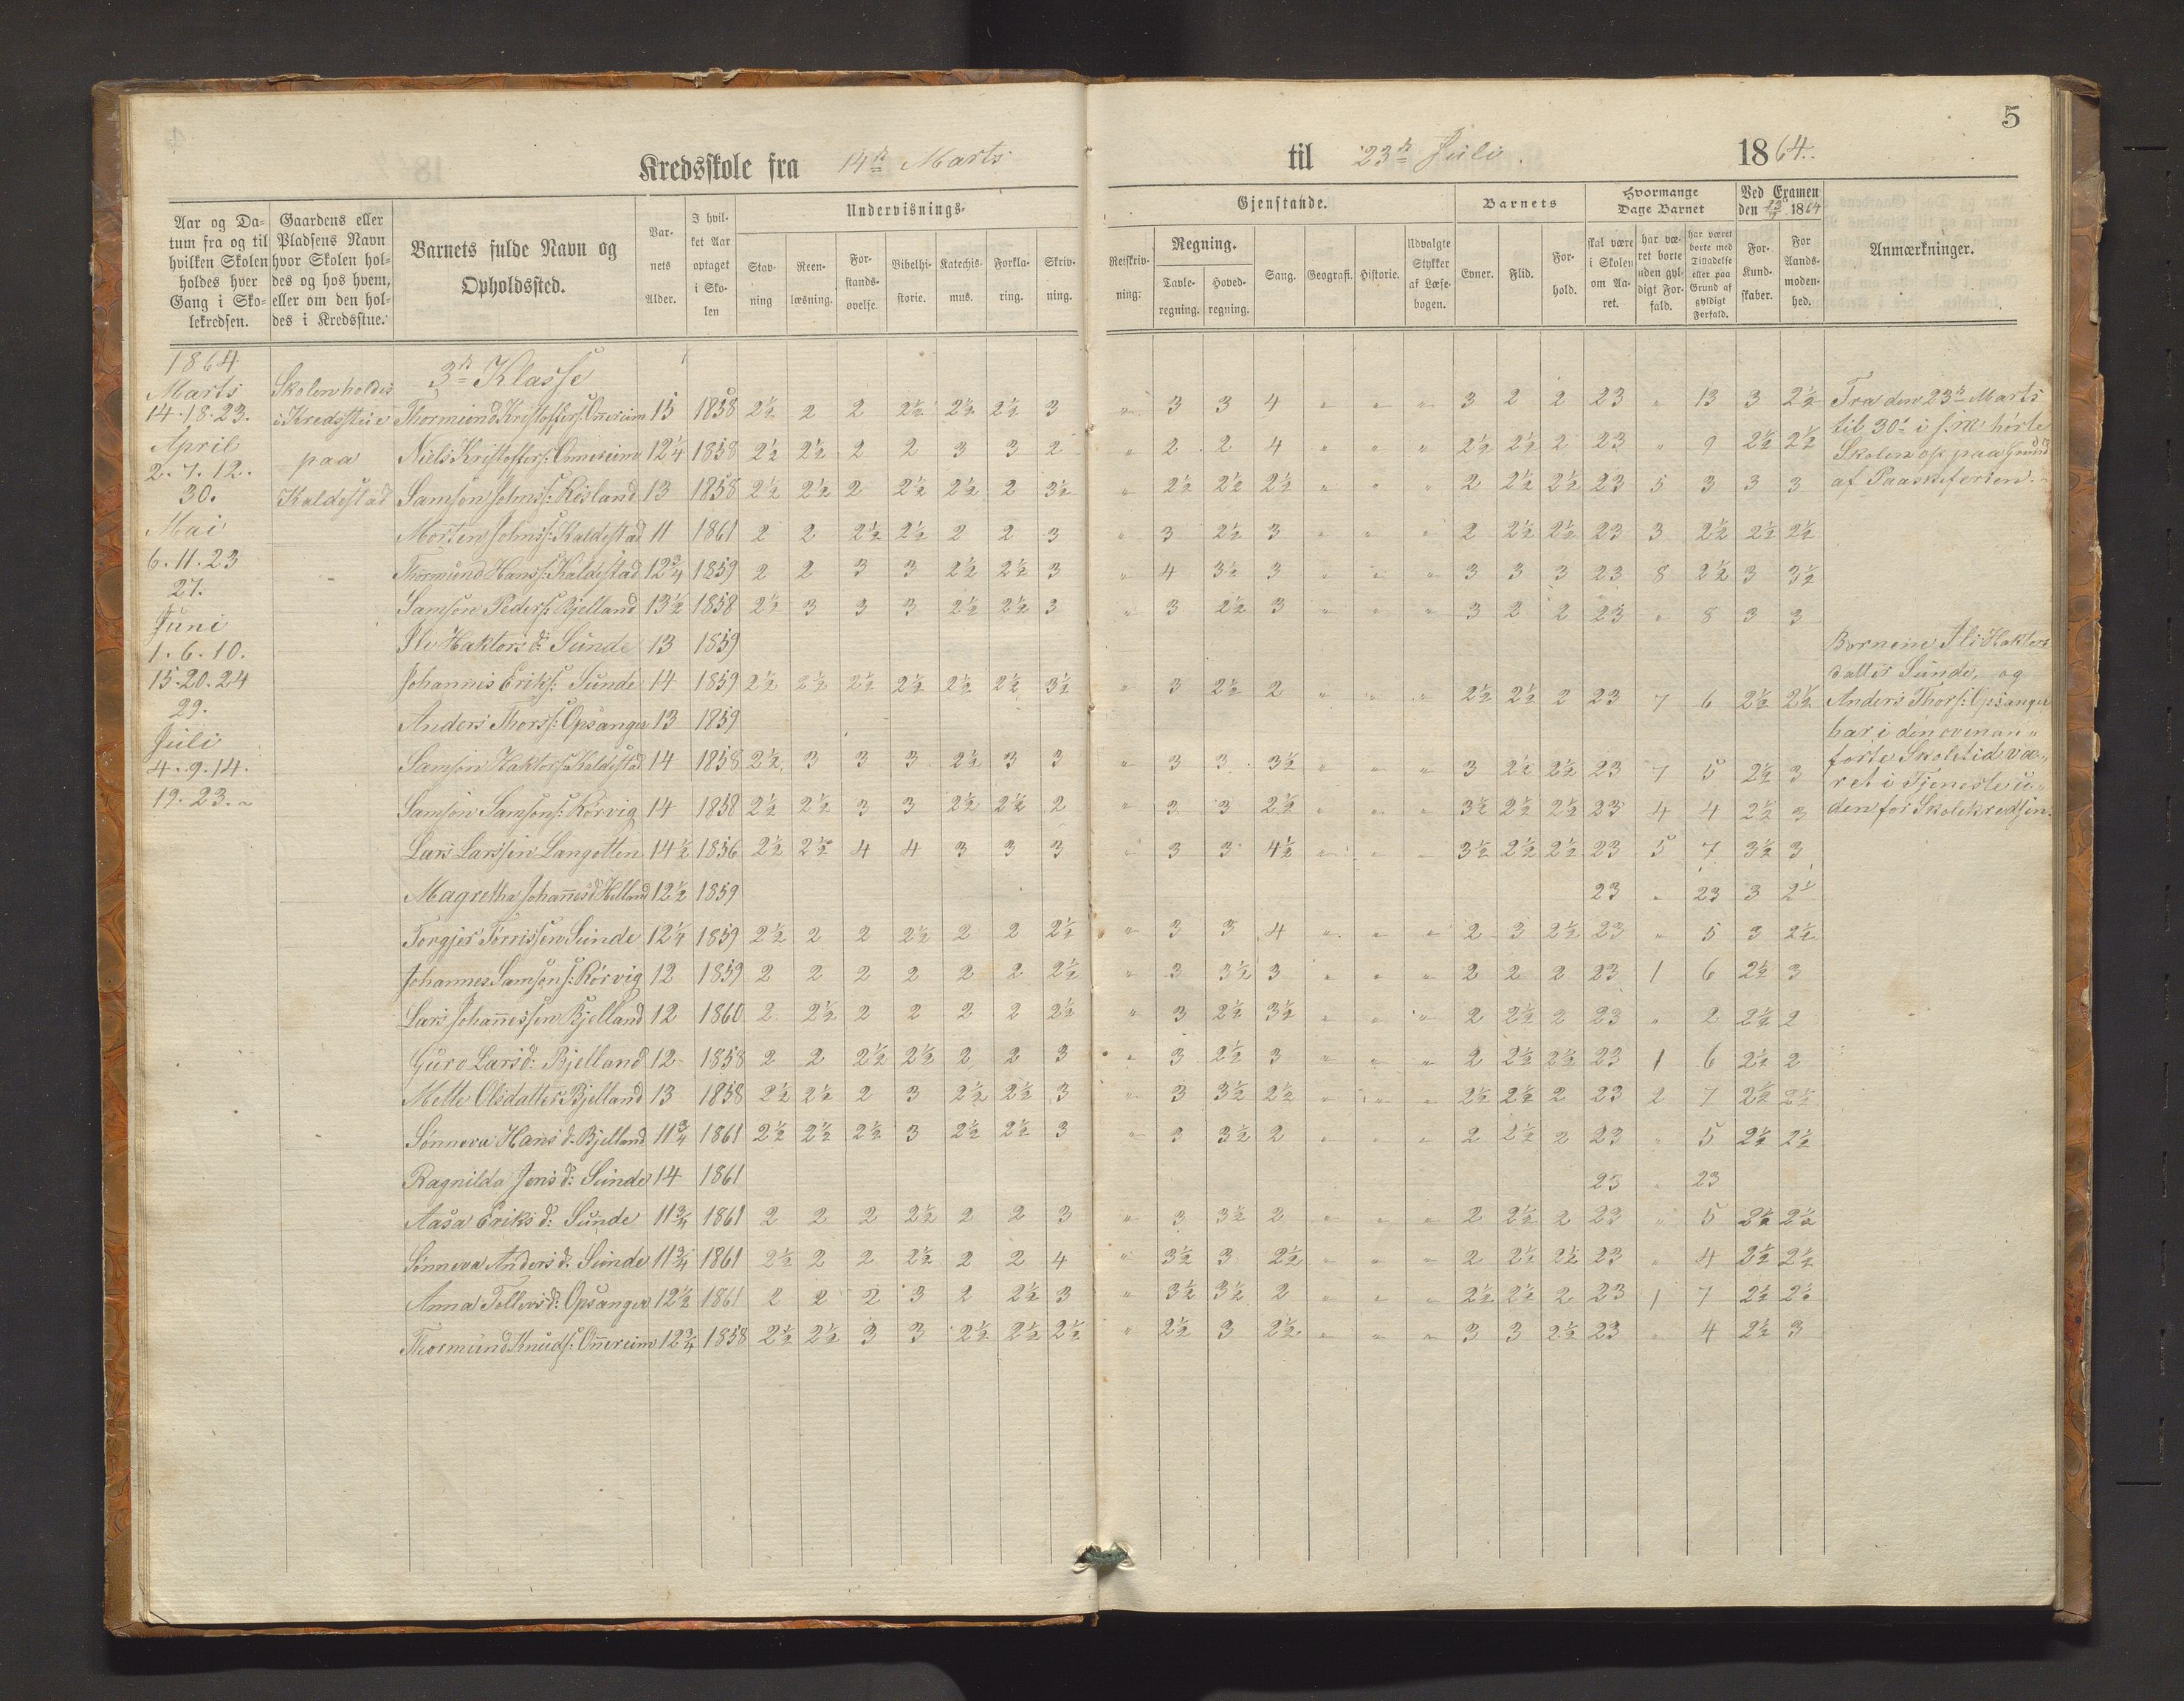 5
Kredsskole fra 14de Marts til 23de Juli 1864.
Aar og Datum fra og til hvilken Skolen holdes hver Gang i Skolekredsen.
Gaardens eller Pladsens Navn hvor Skolen holdes og hos hvem, eller om den holdes i Kredsstue.
Barnets fulde Navn og Opholdssted.
Barnets Alder.
I hvilket Aar optaget i Skolen
Undervisnings-
Stavning
Reenlæsning.
Forstandsøvelse.
Bibelhistorie.
Katechismus.
Forklaring.
Skrivning.
Gjenstande.
Retskrivning:
Regning.
Tavleregning.
Hovedregning.
Sang.
Geografi.
Historie.
Udvalgte Stykker af Læsebogen.
Barnets
Evner.
Flid.
Forhold.
Hvormange Dage Barnet
skal være i Skolen om Aaret.
har været borte uden gyldigt Forfald.
har været borte med Tilladelse eller paa Grund af gyldigt Forfald.
Ved Examen den 23/7 1864
For Kundskaber.
For Aandsmodenhed.
Anmærkninger.
1864
Marts
14. 18. 23.
April
2. 7. 12.
30.
Mai
6. 11. 23
27.
Juni
1. 6. 10.
15. 20. 24
29.
Juli
4. 9. 14.
19. 23.
Skolen holdes
i Kredsstue
paa
Kaldestad
3de Klasse
Thormund Kristoffers: Onnereim 15 1858 2½ 2 2 2½ 2½ 2½ 3 " 3 3 4 " " " 3 2 2 23 " 13 3 2½
Niels Kristoffers: Onnereim 12¼ 1858 2½ 2½ 2 2 3 3 2 " 2 2 4 " " " 2½ 2½ 2 23 " 9 2½ 2½
Samson Johns: Risland 13 1858 2½ 2½ 2 2½ 2½ 2 3½ " 2½ 2½ 2½ " " " 2 2½ 2½ 23 5 3 3 3
Morten Johns: Kaldestad 11 1861 2 2 2½ 2½ 2 2 3 " 3 2½ 3 " " " 2 2½ 2½ 23 3 2½ 2½ 2½
Thormund Hans: Kaldestad 12¾ 1859 2 2 3 3 2½ 2½ 3 " 4 3½ 3 " " " 3 3 3 23 8 2½ 3 3½
Samson Peders: Bjelland 13½ 1858 2½ 3 3 3 2½ 2½ 3 " 3 2½ 3 " " " 3 2 2 23 " 8 3 3
Ili Haktors d: Sunde 13 1859
Johannes Eriks: Sunde 14 1859 2½ 2½ 2½ 2½ 2½ 2½ 3½ " 3 2½ 2 " " " 2½ 2½ 2 23 7 6 2½ 2½
Anders Thors: Opsanger 13 1859
Samson Haktors: Kaldestad 14 1858 2½ 3 3 3 2½ 3 3 " 3 3 3½ " " " 3 2½ 2½ 23 7 5 2½ 3
Samson Samsons: Rørvig 14 1858 2½ 2½ 3 3 2½ 2½ 2 " 3 3 2½ " " " 3½ 2½ 2½ 23 4 4 2½ 3
Lars Larssen Langotten 14½ 1856 2½ 2½ 4 4 3 3 3 " 3 3 4½ " " " 3½ 2½ 2½ 23 5 7 3½ 3
Magretha Johannesd Helland 12½ 1859 23 " 23 3
Torgjer Tørrissen Sunde 12¼ 1859 2½ 2 2 2½ 2 2 2½ " 3 3 4 " " " 2 3 2½ 23 " 5 3 2½
Johannes Samsons: Rørvig 12 1859 2 2 2 2 2 2 2½ " 3 3½ 3 " " " 2 2 2 23 1 6 2½ 3
Lars Johannessen Bjelland 12 1860 2 2½ 2 2 2 2 2½ " 3 2½ 3½ " " " 2 2½ 2 23 " 2 2½ 2
Guro Larsd: Bjelland 12 1858 2 2 2½ 2½ 2 2 3 " 3 2½ 3 " " " 2 2½ 2½ 23 1 6 2½ 2
Mette Olsdatter Bjelland 13 1858 2½ 2½ 2 3 2½ 2½ 3 " 3 3½ 2½ " " " 2½ 2½ 2 23 2 7 2½ 2½
Sønneva Hans d. Bjelland 11¾ 1861 2½ 2½ 2½ 3 2½ 2½ 3 " 3 3½ 2 " " " 2 2½ 2 23 " 5 2½ 2½
Ragnilda Jens d: Sunde 14 1861 23 " 23
Aasa Eriks d: Sunde 11¾ 1861 2 2 2 2½ 2 2 3 " 3 3½ 2 " " " 2 2½ 2 23 " 5 2½ 2½
Sønneva Anders d. Sunde 11¾ 1861 2½ 2 2 2½ 2 2 4 " 3½ 3 2½ " " " 2 2½ 2½ 23 " 4 2½ 2½
Anna Tollevs d: Opsanger 12½ 1861 2 2 2 3 2 2½ 3 " 3½ 3½ 2 " " " 2½ 2½ 2 23 1 7 2½ 2½
Thormund Knuds: Onnereim 12¾ 1858 2½ 2½ 3 3 2½ 2½ 2½ " 2½ 3 2½ " " " 3 3 2½ 23 " 4 2½ 3
Fra den 23de Marts
til 30te i s. M. hørte
Skolen op paa Grund
af Paaskeferien.
Børnene Ili Haktors
datter Sunde, og
Anders Thors: Opsanger
har i den ovenan
førte Skoletid væ
ret i Tjeneste u
denfor Skolekredsen.